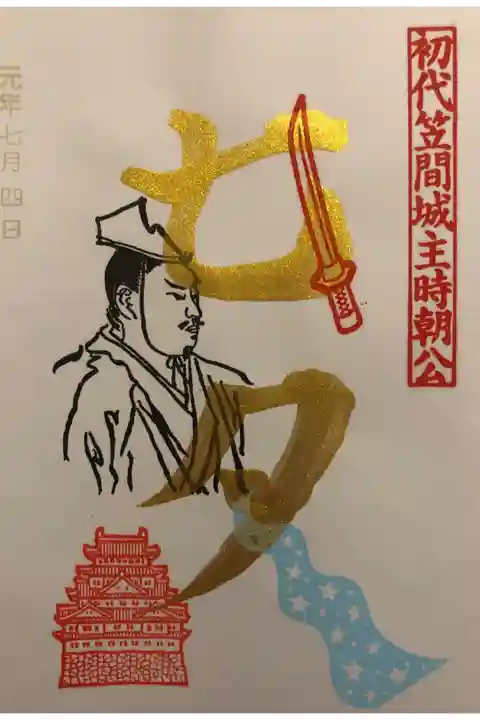 初代笠間城主時朝公
七夕
元年七月四日